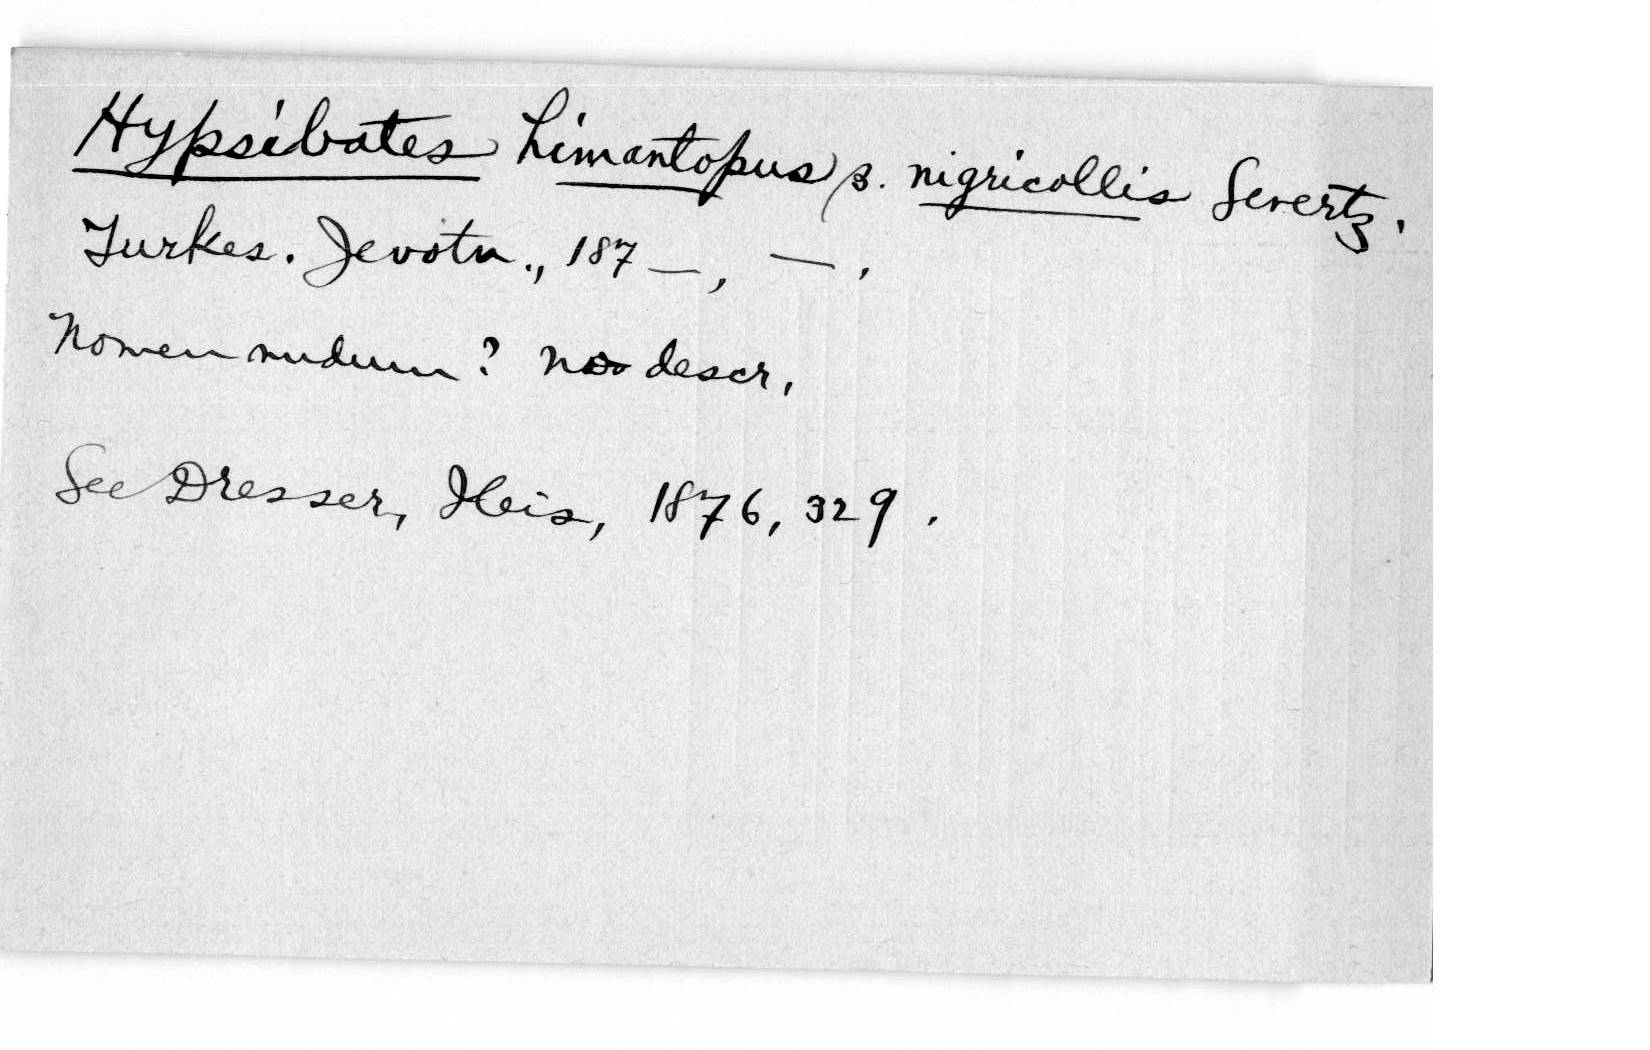 Hypsibates himantopus β. nigricollis Severtz.
Turkes. Jevotn., 187—, —,
Nomen nudum? no descr,
See Dresser, Ibis, 1876, 329.